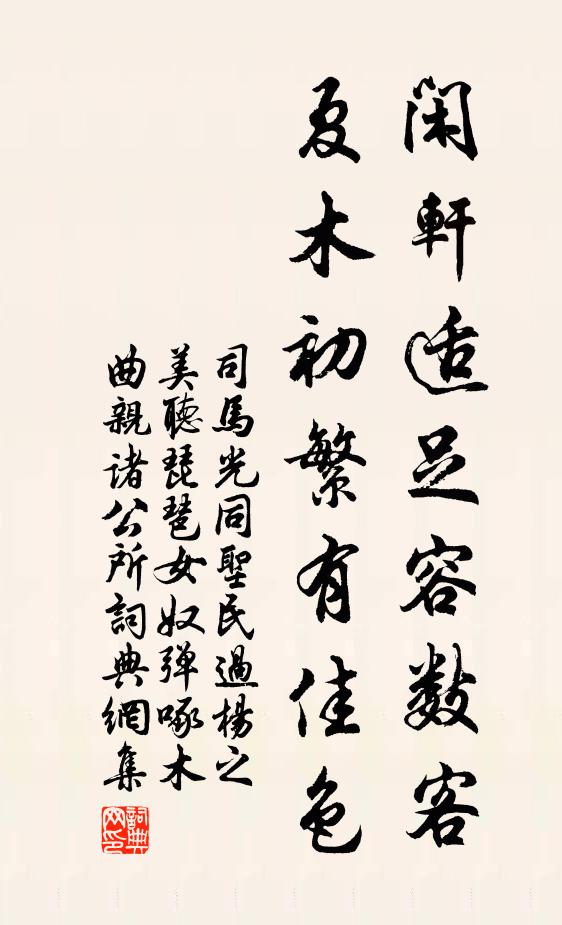 閑軒适足容數客
夏木初繁有佳色
司馬光同聖民過楊之
美聽琵琶女奴弹啄木
曲親诸公所詞典網集
詞典
网印